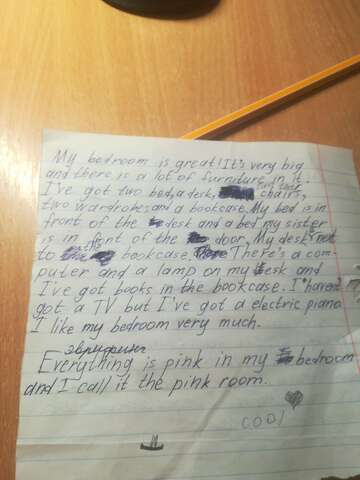 My bedroom is great! It's very big
and there is a lot of furniture in it.
I've got two bed, a desk, chairs,
two wardrobes and a bookcase. My bed is in
front of the desk and a bed my sister
is in font of the door, My desk
to the bookcase. There's a com-
puter and a lamp on my desk and
I've got books in the bookcase. I haven't
got a TV but I've got a electric piano.
I like my bedroom very much.
Everything is pink in my bedroom
and I call it the pink room.
cool